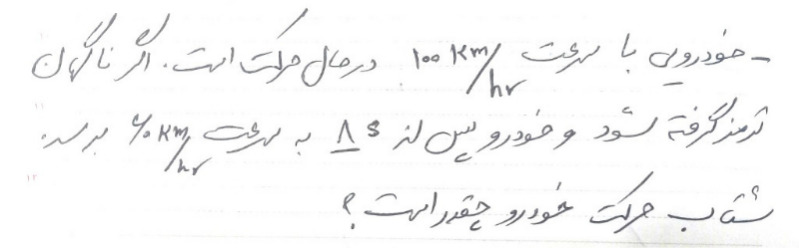 - خودرویی با سرعت ۱۰۰ Km/hr درحال حرکت است. اگر ناگهان
ترمز گرفته شود و خودرو پس از ۸ s به سرعت ۶۰ Km/hr برسد.
شتاب حرکت خودرو چقدر است؟